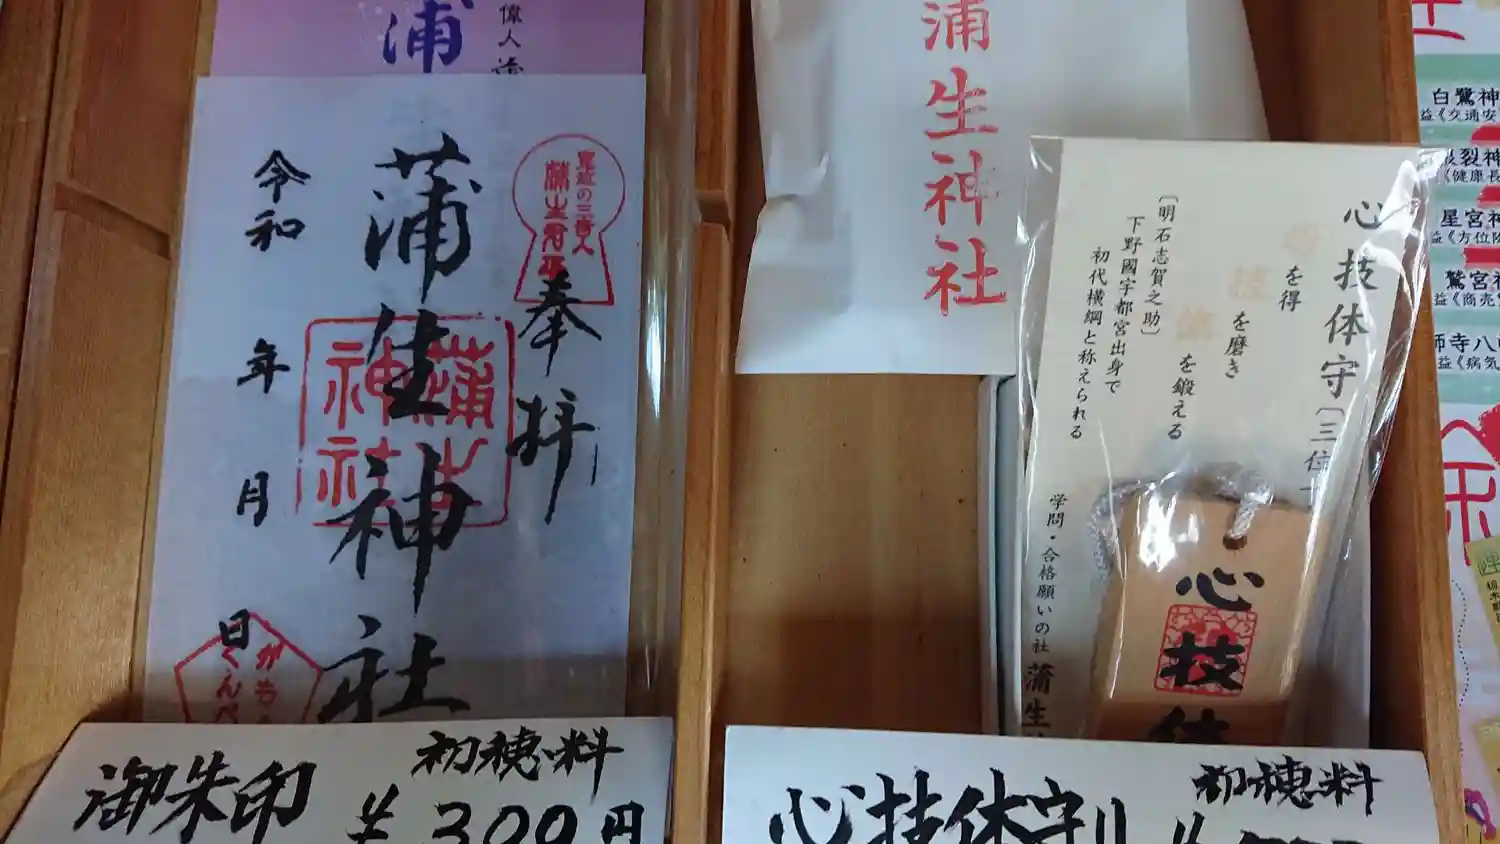 蒲
偉人
奉拝
蒲生神社
蒲生神社
令和
年
月
日
がもう
くんぺ
御朱印
初穂料
¥300円
蒲生神社
心技体守〔三位
を得
を磨き
を鍛える
〔明石志賀之助〕
下野國宇都宮出身で
初代横綱と称えられる
学問・合格願いの社
蒲生
心
技
体
心技体守り
初穂料
¥
白鷺神
益《交通安
根裂神
《健康長
星宮神
益《方位除
鷲宮神
益《商売
師寺八
益《病気